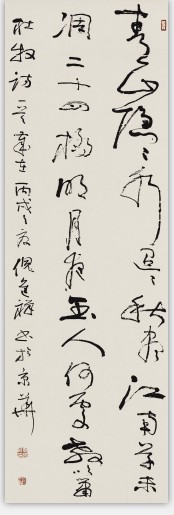 青山隐〻水迢〻秋尽江南草未
凋二十四桥明月夜玉人何处教吹箫
杜牧诗一首岁在丙戌之夏倪进祥书于京华